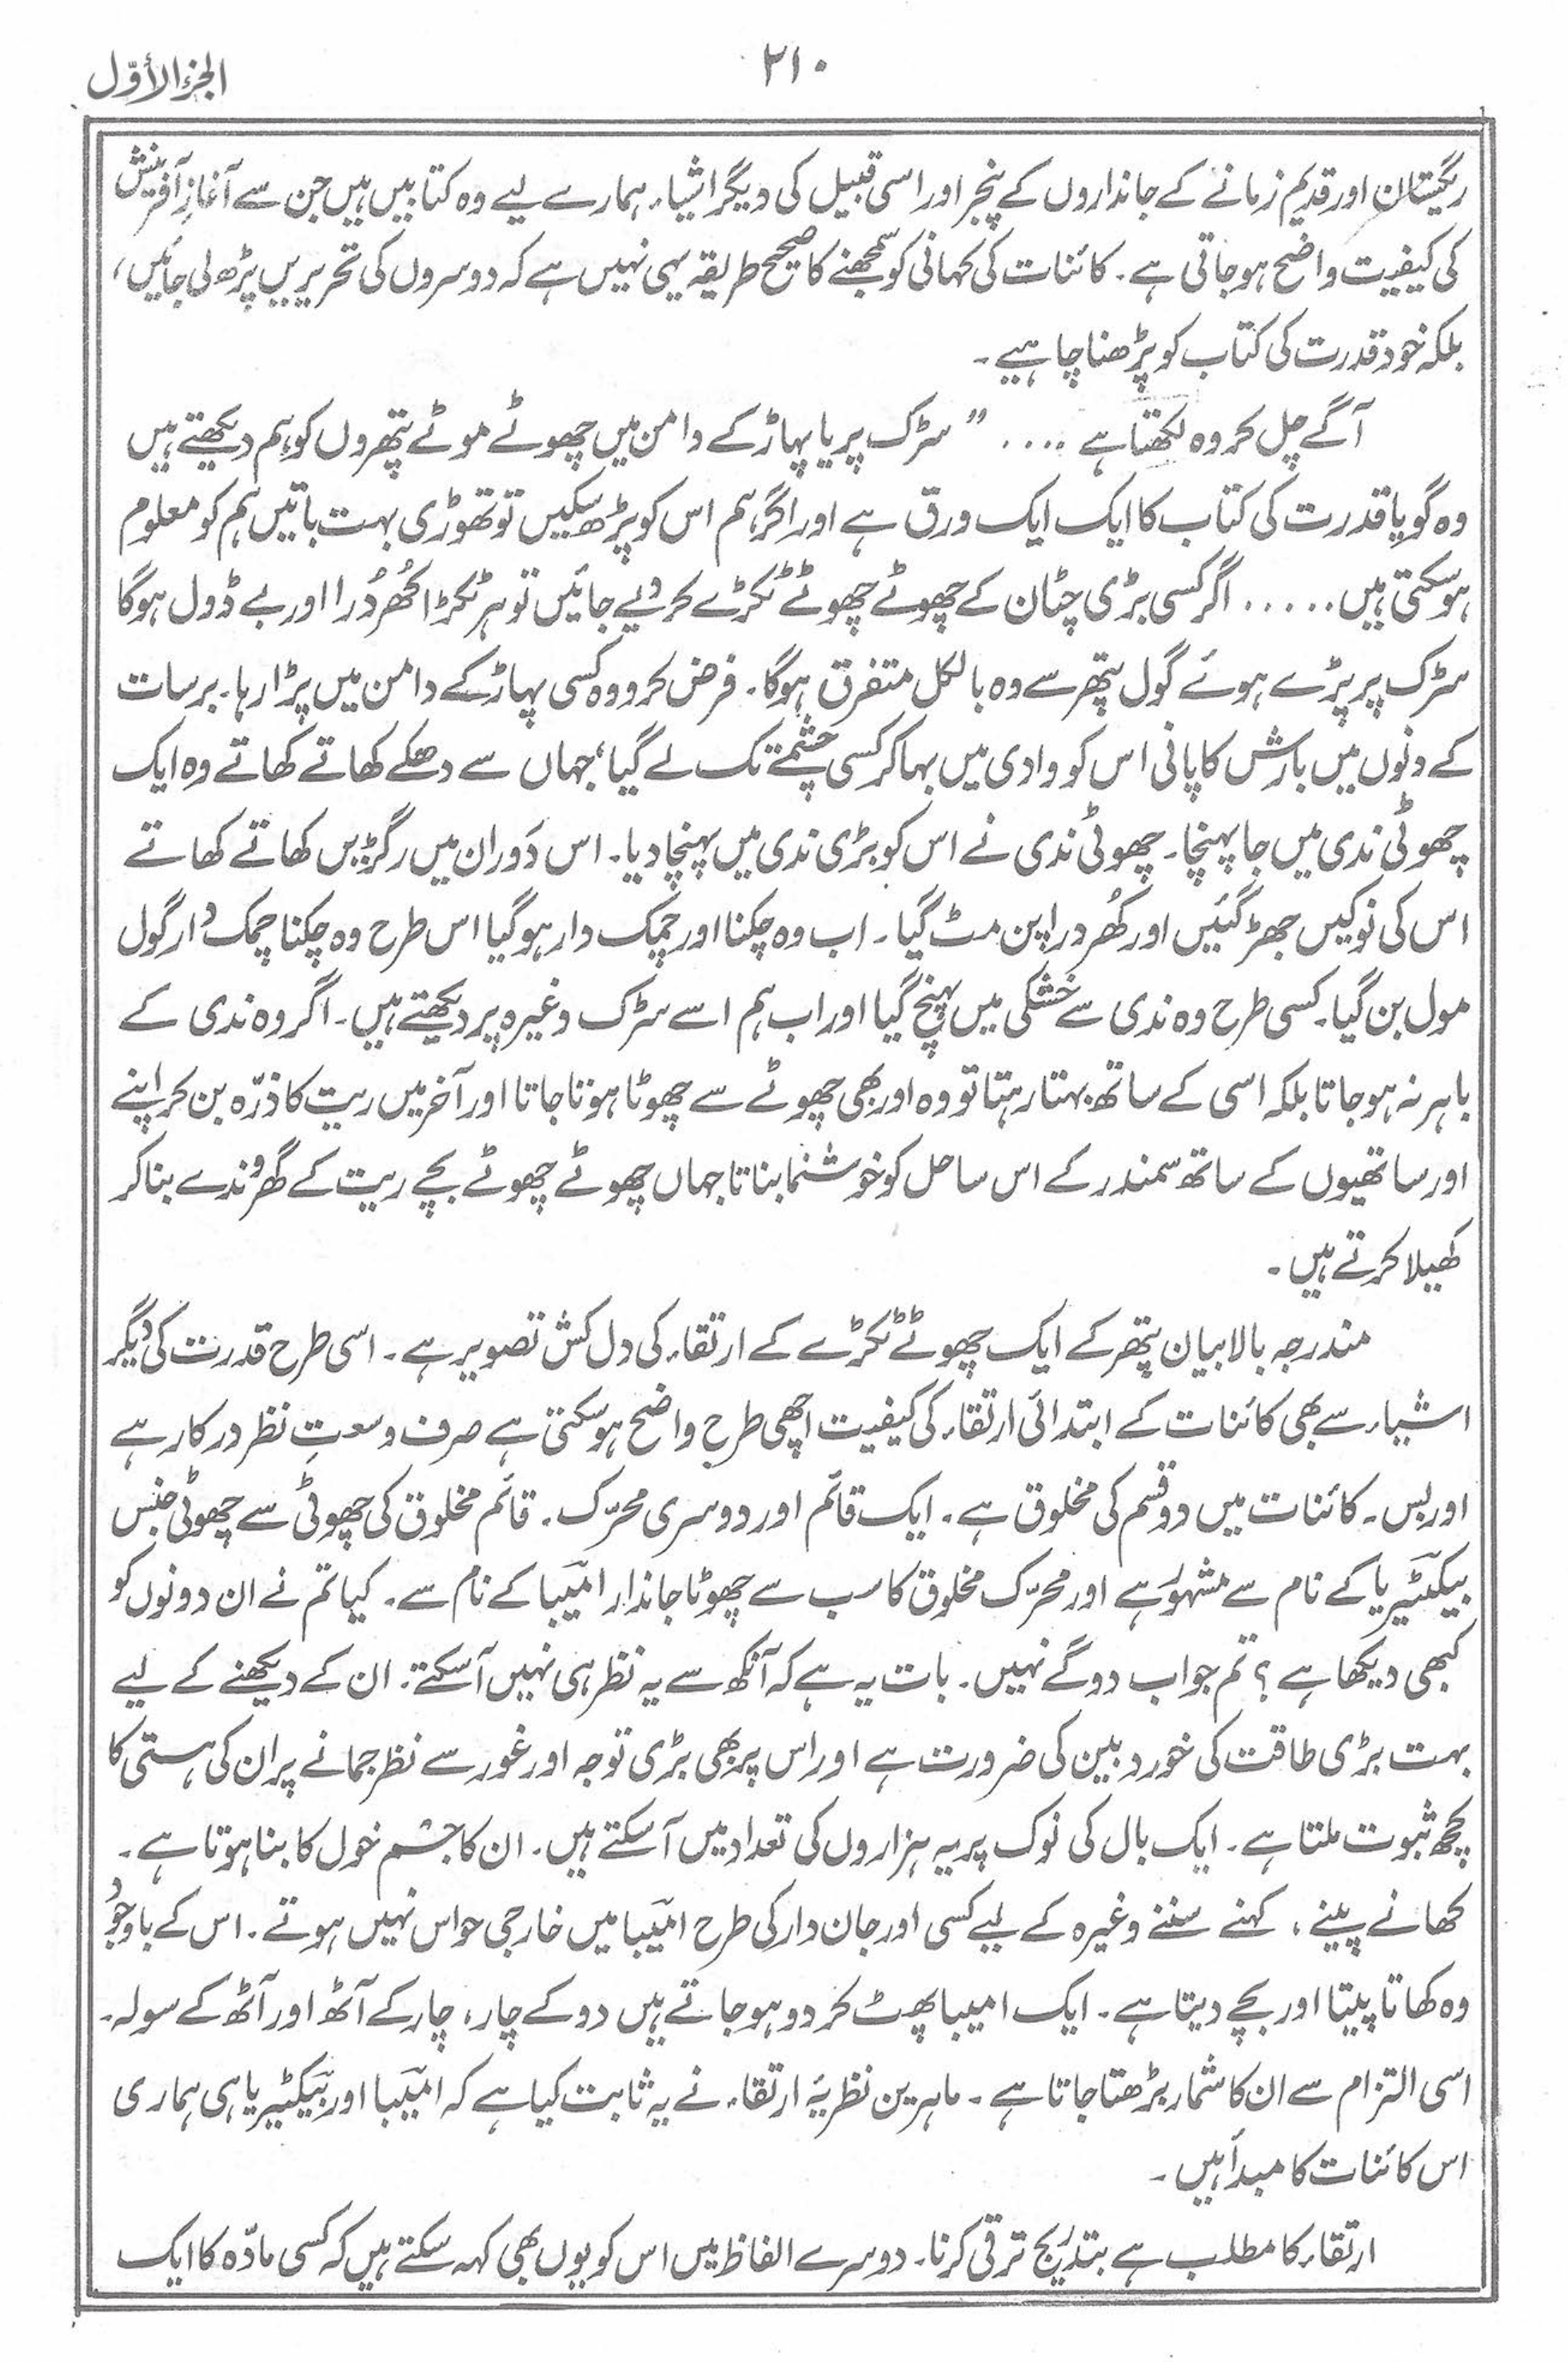 الجزء الأوّل
۲۱۰
ریگستان اور قدیم زمانے کے جانداروں کے پنجر اور اسی قبیل کی دیگر اشیاء ہمارے لیے وہ کتابیں ہیں جن سے آغازِ آفرینش
کی کیفیت واضح ہو جاتی ہے۔ کائنات کی کہانی کو سمجھنے کا صحیح طریقہ یہی نہیں ہے کہ دوسروں کی تحریریں پڑھ لی جائیں،
بلکہ خود قدرت کی کتاب کو پڑھنا چاہیے۔
آگے چل کر وہ لکھتا ہے .... ”سڑک پر یا پہاڑ کے دامن میں چھوٹے موٹے پتھروں کو ہم دیکھتے ہیں
وہ گویا قدرت کی کتاب کا ایک ایک ورق ہے اور اگر ہم اس کو پڑھ سکیں تو تھوڑی بہت باتیں ہم کو معلوم
ہو سکتی ہیں ..... اگر کسی بڑی چٹان کے چھوٹے چھوٹے ٹکڑے کر دیے جائیں تو ہر ٹکڑا کھُردُرا اور بے ڈول ہوگا
سڑک پر پڑے ہوئے گول پتھر سے وہ بالکل متفرق ہوگا۔ فرض کرو وہ کسی پہاڑ کے دامن میں پڑا رہا۔ برسات
کے دنوں میں بارش کا پانی اس کو وادی میں بہا کر کسی چشمے تک لے گیا، جہاں سے دھکے کھاتے کھاتے وہ ایک
چھوٹی ندی میں جا پہنچا۔ چھوٹی ندی نے اس کو بڑی ندی میں پہنچا دیا۔ اس دَوران میں رگڑیں کھاتے کھاتے
اس کی نوکیں جھڑ گئیں اور کھُردراپن مٹ گیا۔ اب وہ چکنا اور چمک دار ہو گیا اس طرح وہ چکنا چمک دار گول
مول بن گیا۔ کسی طرح وہ ندی سے خشکی میں پہنچ گیا اور اب ہم اسے سڑک وغیرہ پر دیکھتے ہیں۔ اگر وہ ندی کے
باہر نہ ہو جاتا بلکہ اسی کے ساتھ بہتا رہتا تو وہ اور بھی چھوٹے سے چھوٹا ہوتا جاتا اور آخر میں ریت کا ذرّہ بن کر اپنے
اور ساتھیوں کے ساتھ سمندر کے اس ساحل کو خوشنما بناتا جہاں چھوٹے چھوٹے بچے ریت کے گھروندے بنا کر
کھیلا کرتے ہیں۔
مندرجہ بالا بیان پتھر کے ایک چھوٹے ٹکڑے کے ارتقاء کی دل کش تصویر ہے۔ اسی طرح قدرت کی دیگر
اشیاء سے بھی کائنات کے ابتدائی ارتقاء کی کیفیت اچھی طرح واضح ہو سکتی ہے صرف وسعتِ نظر درکار ہے
اور بس۔ کائنات میں دو قسم کی مخلوق ہے۔ ایک قائم اور دوسری محرّک۔ قائم مخلوق کی چھوٹی سے چھوٹی جنس
بیکٹیریا کے نام سے مشہور ہے اور محرّک مخلوق کا سب سے چھوٹا جاندار امیَبا کے نام سے۔ کیا تم نے ان دونوں کو
کبھی دیکھا ہے؟ تم جواب دو گے نہیں۔ بات یہ ہے کہ آنکھ سے یہ نظر ہی نہیں آ سکتے۔ ان کے دیکھنے کے لیے
بہت بڑی طاقت کی خورد بین کی ضرورت ہے اور اس پر بھی بڑی توجہ اور غور سے نظر جمانے پر ان کی ہستی کا
کچھ ثبوت ملتا ہے۔ ایک بال کی نوک پر یہ ہزاروں کی تعداد میں آ سکتے ہیں۔ ان کا جسم خول کا بنا ہوتا ہے۔
کھانے پینے، کہنے سننے وغیرہ کے لیے کسی اور جان دار کی طرح امیَبا میں خارجی حواس نہیں ہوتے۔ اس کے باوجود
وہ کھاتا پیتا اور بچے دیتا ہے۔ ایک امیبا پھٹ کر دو ہو جاتے ہیں دو کے چار، چار کے آٹھ اور آٹھ کے سولہ۔
اسی التزام سے ان کا شمار بڑھتا جاتا ہے۔ ماہرین نظریۂ ارتقاء نے یہ ثابت کیا ہے کہ امیَبا اور بیکٹیریا ہی ہماری
اس کائنات کا مبدأ ہیں۔
ارتقاء کا مطلب ہے بتدریج ترقی کرنا۔ دوسرے الفاظ میں اس کو یوں بھی کہہ سکتے ہیں کہ کسی مادّہ کا ایک